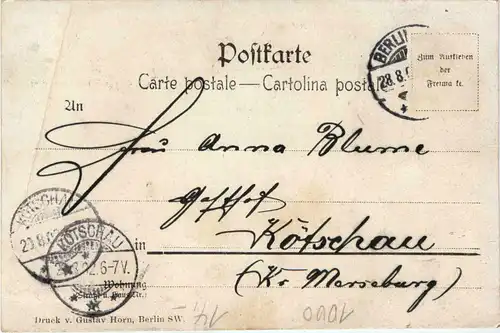 Postkarte
Carte postale — Cartolina postale
BERLIN
28.8.0
Zum Aufkleben
der
Freima ke.
An
Frau Anna Blume
Gasthof
in Kötschau
(Kr Merseburg)
KÖTSCHAU
29.8.0
KÖTSCHAU
2 6-7V.
Wohnung
(Straße u. Hausnr.)
Druck v. Gustav Horn, Berlin SW.
14.-
1000